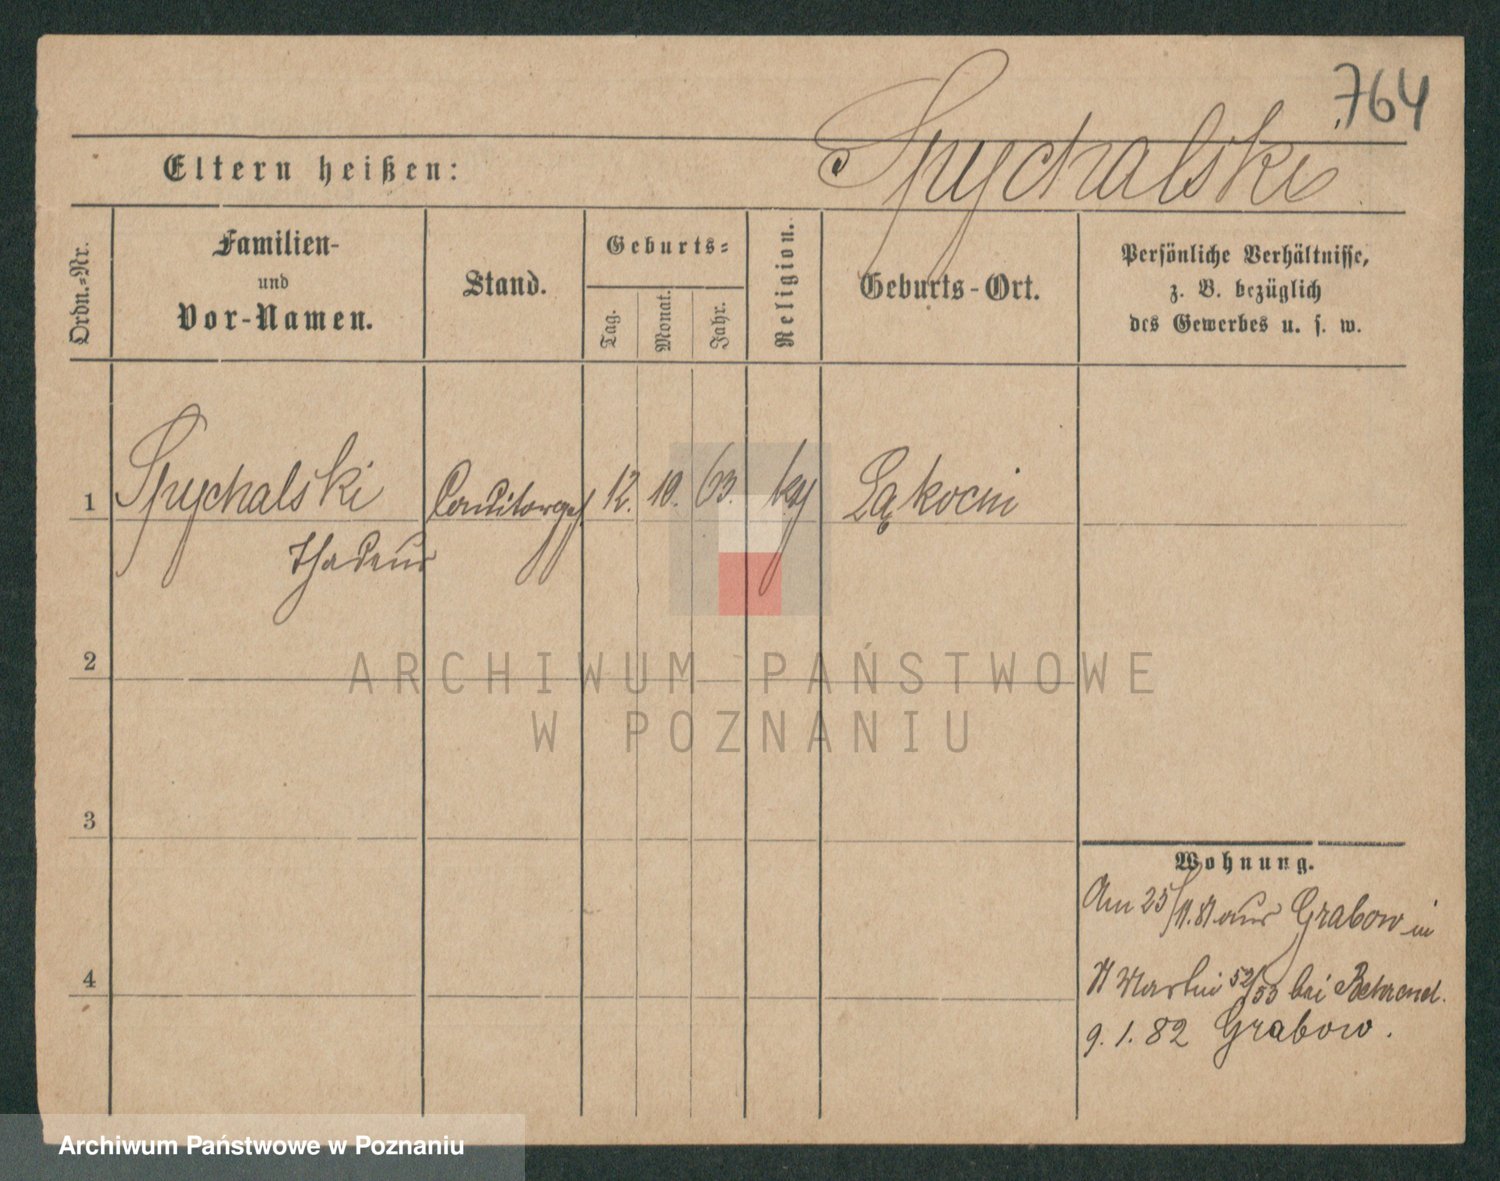 764
Spychalski
Eltern heißen:
Ordn.-Nr.
Familien-
und
Vor-Namen.
Stand.
Geburts-
Tag.
Monat.
Jahr.
Religion.
Geburts-Ort.
Persönliche Verhältnisse,
z. B. bezüglich
des Gewerbes u. s. w.
1 Spychalski Conditorgeh. 12. 10. 63. kg Ląkocin
Thadeus
2
ARCHIWUM PAŃSTWOWE
W POZNANIU
3
Wohnung.
Am 25/11.81 aus Grabow in
St Martin 52/53 bei Behrend.
4
9. 1. 82 Grabow.
Archiwum Państwowe w Poznaniu